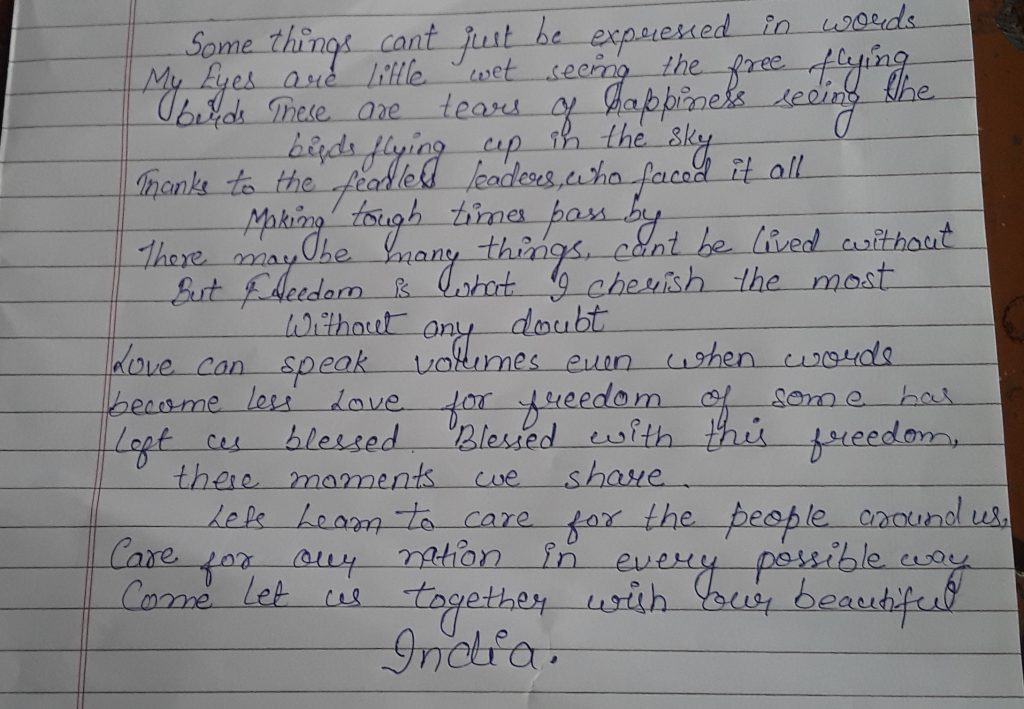 Some things cant just be expressed in words
My Eyes are little wet seeing the free flying
birds These are tears of Happiness seeing the
birds flying up in the sky
Thanks to the fearless leaders, who faced it all
Making tough times pass by
There may be many things, cant be lived without
But Freedom is what I cherish the most
Without any doubt
Love can speak volumes even when words
become less Love for freedom of some has
Left us blessed. Blessed with this freedom,
these moments we share.
Lets Learn to care for the people around us,
Care for our nation in every possible way
Come Let us together wish our beautiful
India.